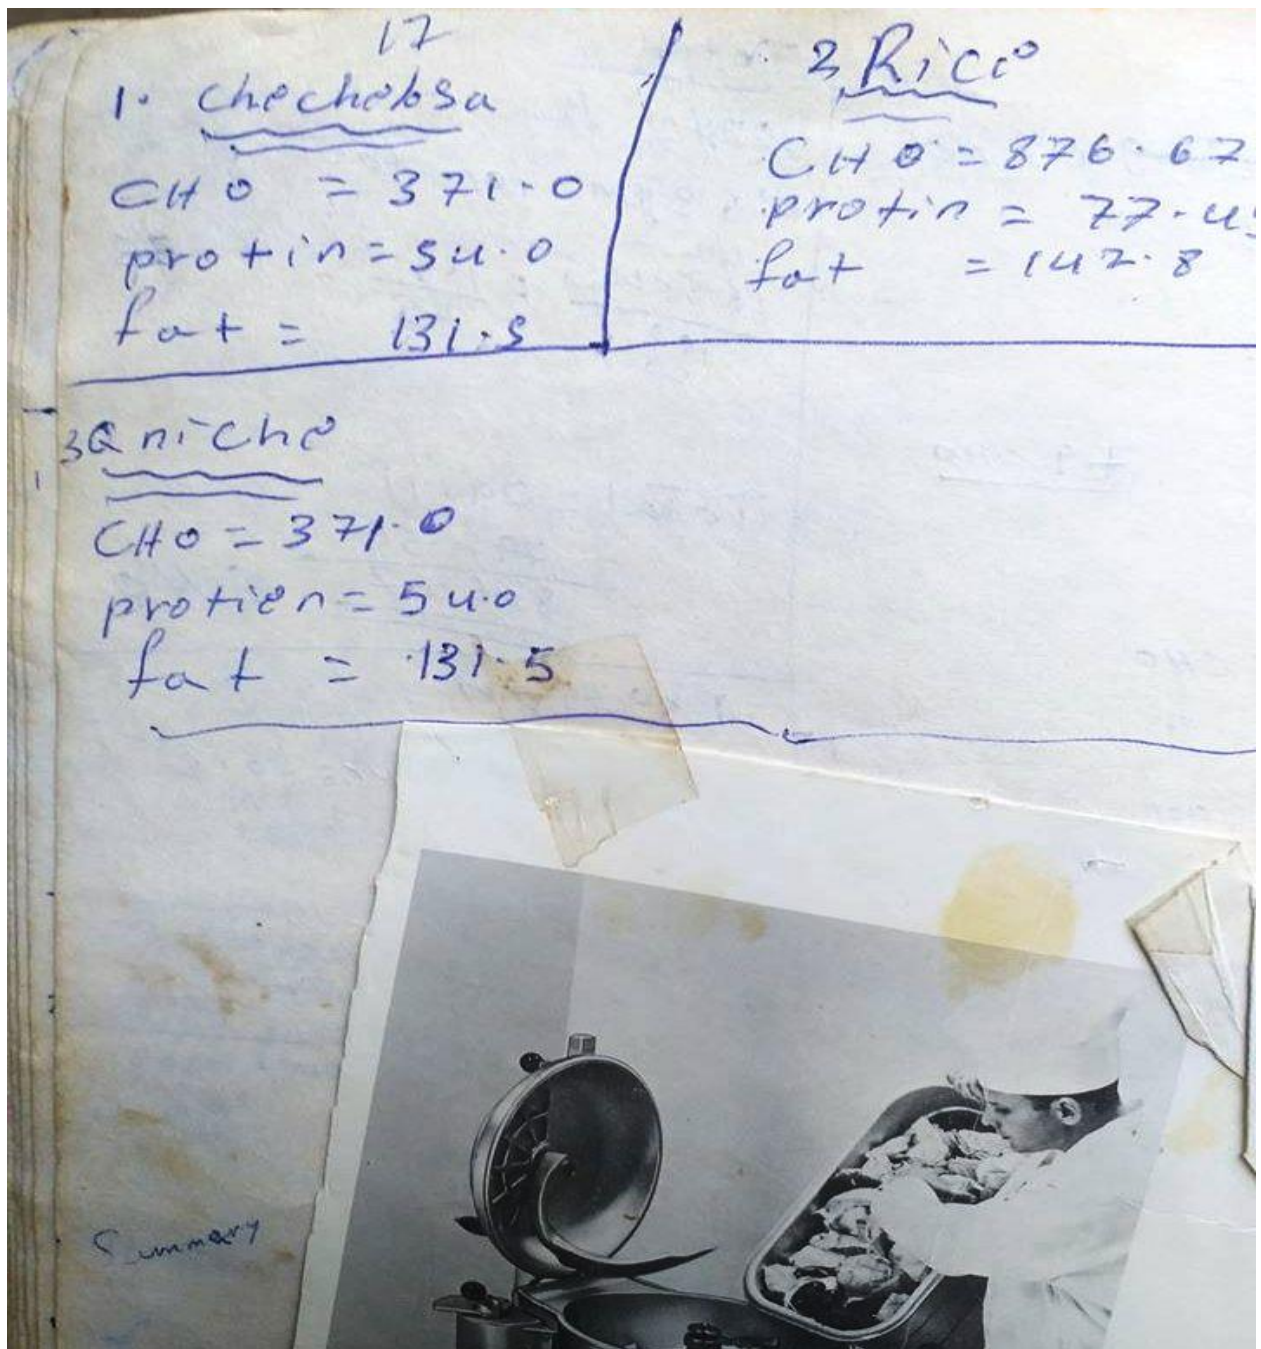 17
1. chechebsa
CHO = 371.0
protin = 54.0
fat = 131.5
2 Rice
CHO = 876.67
protin = 77.4
fat = 142.8
3 Qniche
CHO = 371.0
protien = 54.0
fat = 131.5
Summary